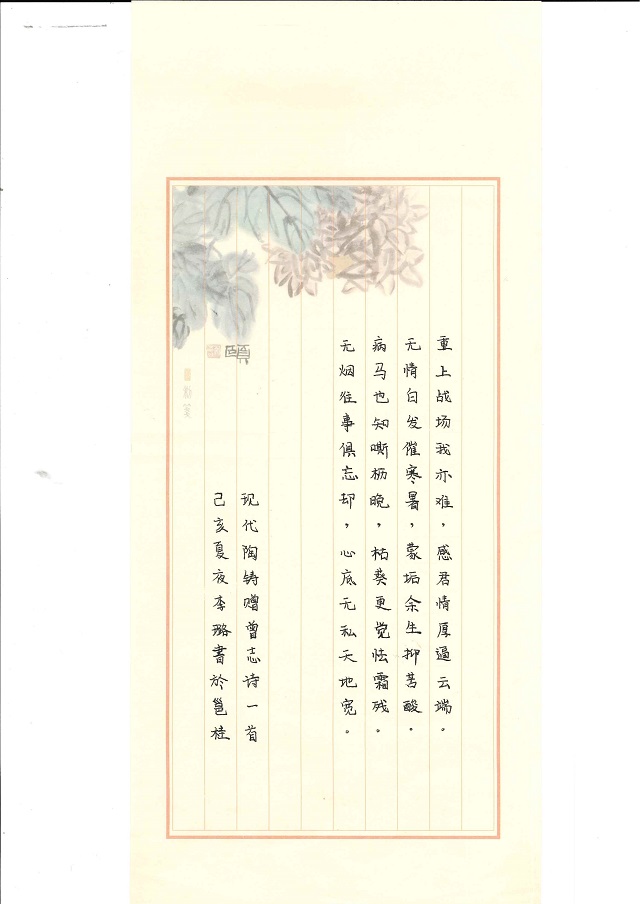 重上战场我亦难，感君情厚逼云端。
无情白发催寒暑，蒙垢余生抑苦酸。
病马也知嘶枥晚，枯葵更觉怯霜残。
无烟往事俱忘却，心底无私天地宽。
现代陶铸赠曾志诗一首
己亥夏夜李璐書於邕桂